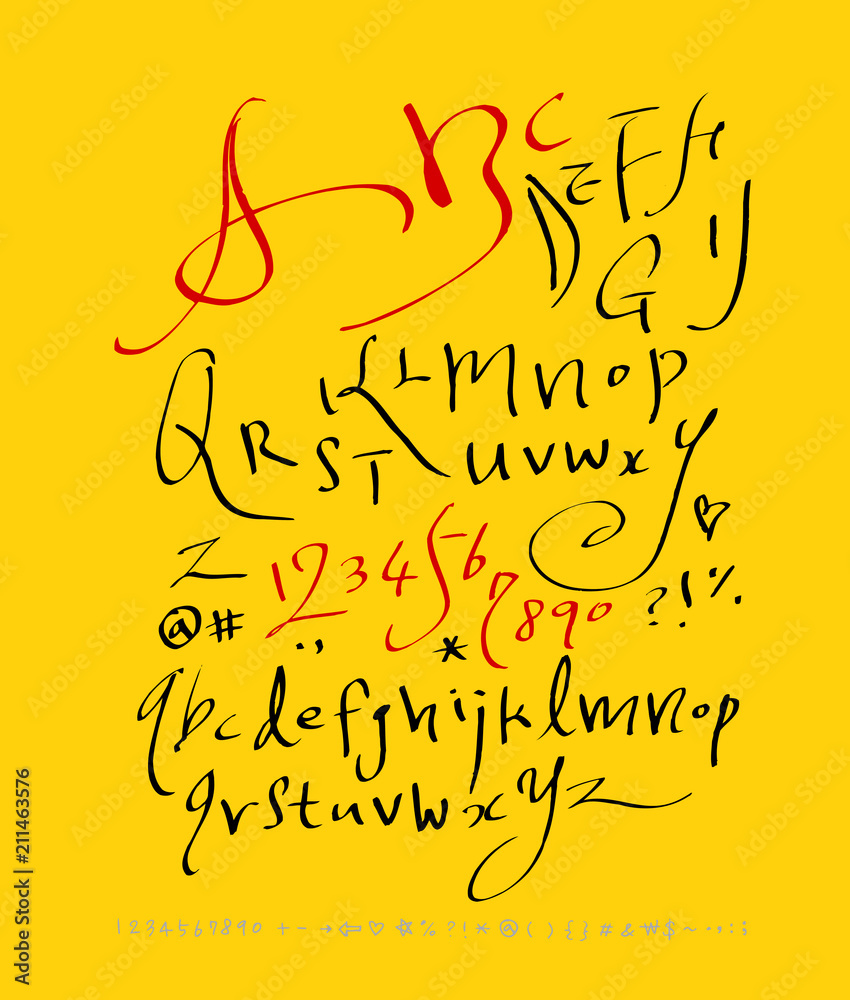 A B C D E F H
G I J
K L m n o p
Q R S T u v w x y
z 1 2 3 4 5 6 7 8 9 0 ♡
@ # . , * ? ! %
a b c d e f g h i j k l m n o p
q r s t u v w x y z
1 2 3 4 5 6 7 8 9 0 + - → ⇦ ♡ ☆ % ? ! * @ ( ) { } # & ₩ $ ~ · . : ;
Adobe Stock | #211463576